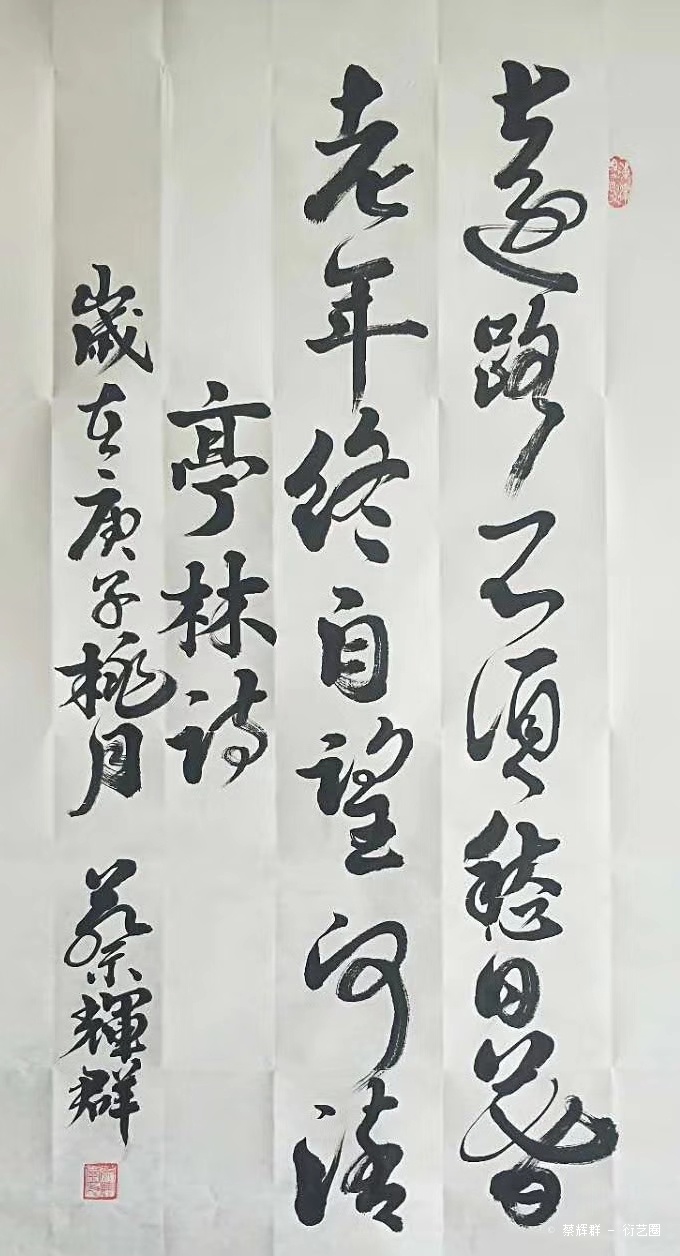 远路不须愁日暮
老年终自望河清
亭林诗
歲在庚子桃月 蔡輝群
蔡辉群 - 衍艺圈